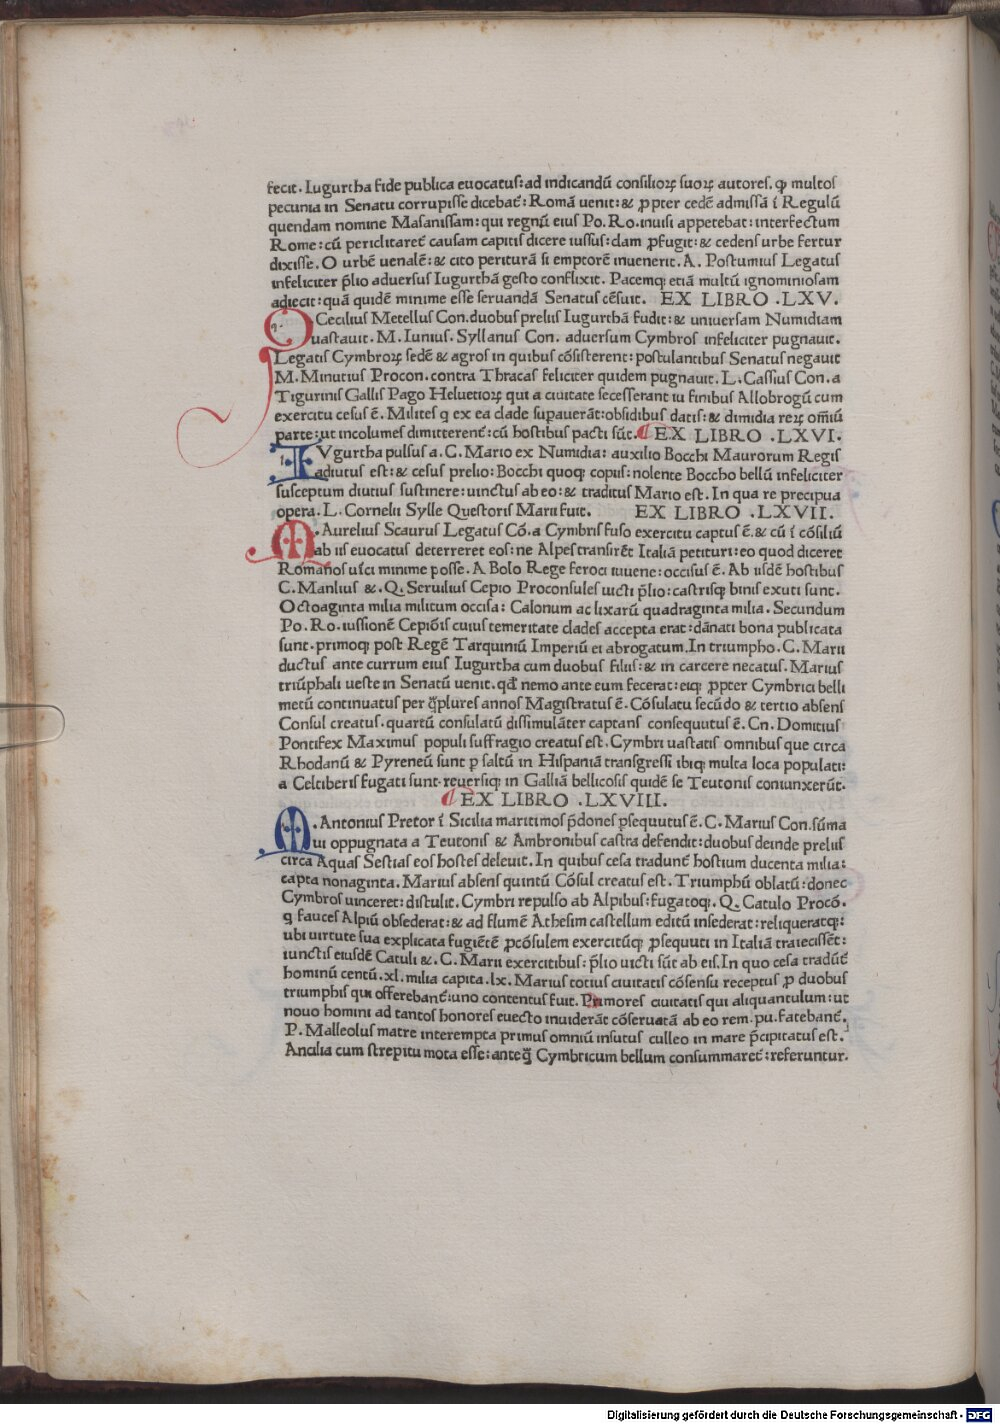 fecit. Iugurtha fide publica euocatus: ad indicandū consilioꝝ suoꝝ autores. ꝙ multos
pecunia in Senatu corrupisse dicebat̄: Romā uenit: & ꝓpter cedē admissā ī Regulū
quendam nomine Masanissam: qui regnū eius Po. Ro. inuisi appetebat: interfectum
Rome: cū periclitaret̄ causam capitis dicere iussus: clam ꝓfugit: & cedens urbe fertur
dixisse. O urbē uenalē: & cito periturā si emptorē inuenerit. A. Postumius Legatus
infeliciter p̄lio aduersus Iugurthā gesto conflixit. Pacemq; etiā multū ignominiosam
adiecit: quā quidē minime esse seruandā Senatus cēsuit. EX LIBRO .LXV.
Q Cecilius Metellus Con. duobus preliis Iugurthā fudit: & uniuersam Numidiam
uastauit. M. Iunius. Syllanus Con. aduersum Cymbros infeliciter pugnauit.
Legatis Cymbroꝝ sedē & agros in quibus cōsisterent: postulantibus Senatus negauit
M. Minutius Procon. contra Thracas feliciter quidem pugnauit. L. Cassius Con. a
Tigurinis Gallis Pago Heluetioꝝ qui a ciuitate secesserant iu finibus Allobrogū cum
exercitu cesus ē. Milites q ex ea clade supauerāt: obsidibus datis: & dimidia reꝝ oīm̄
parte: ut incolumes dimitterent̄: cū hostibus pacti sūt. EX LIBRO .LXVI.
IVgurtha pulsus a. C. Mario ex Numidia: auxilio Bocchi Maurorum Regis
adiutus est: & cesus prelio: Bocchi quoq; copiis: nolente Boccho bellū infeliciter
susceptum diutius sustinere: uinctus ab eo: & traditus Mario est. In qua re precipua
opera. L. Cornelii Sylle Questoris Marii fuit. EX LIBRO .LXVII.
M. Aurelius Scaurus Legatus Cō. a Cymbris fuso exercitu captus ē. & cū ī cōsiliū
ab iis euocatus deterreret eos: ne Alpes transirēt Italiā petituri: eo quod diceret
Romanos uīci minime posse. A Bolo Rege feroci iuuene: occisus ē. Ab iisdē hostibus
C. Manlius &. Q. Seruilius Cepio Proconsules uicti p̄lio: castrisq; binis exuti sunt.
Octoaginta milia militum occisa: Calonum ac lixarū quadraginta milia. Secundum
Po. Ro. iussionē Cepiōis cuius temeritate clades accepta erat: dānati bona publicata
sunt. primoq; post Regē Tarquiniū Imperiū ei abrogatum. In triumpho. C. Marii
ductus ante currum eius Iugurtha cum duobus filiis: & in carcere necatus. Marius
triūphali ueste in Senatū uenit. qđ nemo ante eum fecerat: eiq; ꝓpter Cymbrici belli
metū continuatus per q̄plures annos Magistratus ē. Cōsulatu secūdo & tertio absens
Consul creatus. quartū consulatū dissimulāter captans consequutus ē. Cn. Domitius
Pontifex Maximus populi suffragio creatus est. Cymbri uastatis omnibus que circa
Rhodanū & Pyreneū sunt ꝑ saltū in Hispaniā transgressi ibiq; multa loca populati:
a Celtiberis fugati sunt. reuersiq; in Galliā bellicosis quidē se Teutonis coniunxerūt.
EX LIBRO .LXVIII.
M. Antonius Pretor ī Sicilia maritimos p̄dones ꝑsequutus ē. C. Marius Con. sūma
ui oppugnata a Teutonis & Ambronibus castra defendit: duobus deinde preliis
circa Aquas Sestias eos hostes deleuit. In quibus cesa tradunt̄ hostium ducenta milia:
capta nonaginta. Marius absens quintū Cōsul creatus est. Triumphū oblatū: donec
Cymbros uinceret: distulit. Cymbri repulso ab Alpibus: fugatoq;. Q. Catulo Procō.
q fauces Alpiū obsederat: & ad flumē Athesim castellum editū insederat: reliqueratq;:
ubi uirtute sua explicata fugiētē ꝓcōsulem exercitūq; ꝓsequuti in Italiā traiecissēt:
iunctis eiusdē Catuli &. C. Marii exercitibus: p̄lio uicti sūt ab eis. In quo cesa tradūt̄
hominū centū. xl. milia capita. lx. Marius totius ciuitatis cōsensu receptus ꝓ duobus
triumphis qui offerebant̄: uno contentus fuit. Primores ciuitatis qui aliquantulum: ut
nouo homini ad tantos honores euecto inuiderāt cōseruatā ab eo rem. pu. fatebant̄.
P. Malleolus matre interempta primus omniū insutus culleo in mare p̄cipitatus est.
Ancilia cum strepitu mota esse: anteq̄ Cymbricum bellum consummaret̄: referuntur.
Digitalisierung gefördert durch die Deutsche Forschungsgemeinschaft - DFG